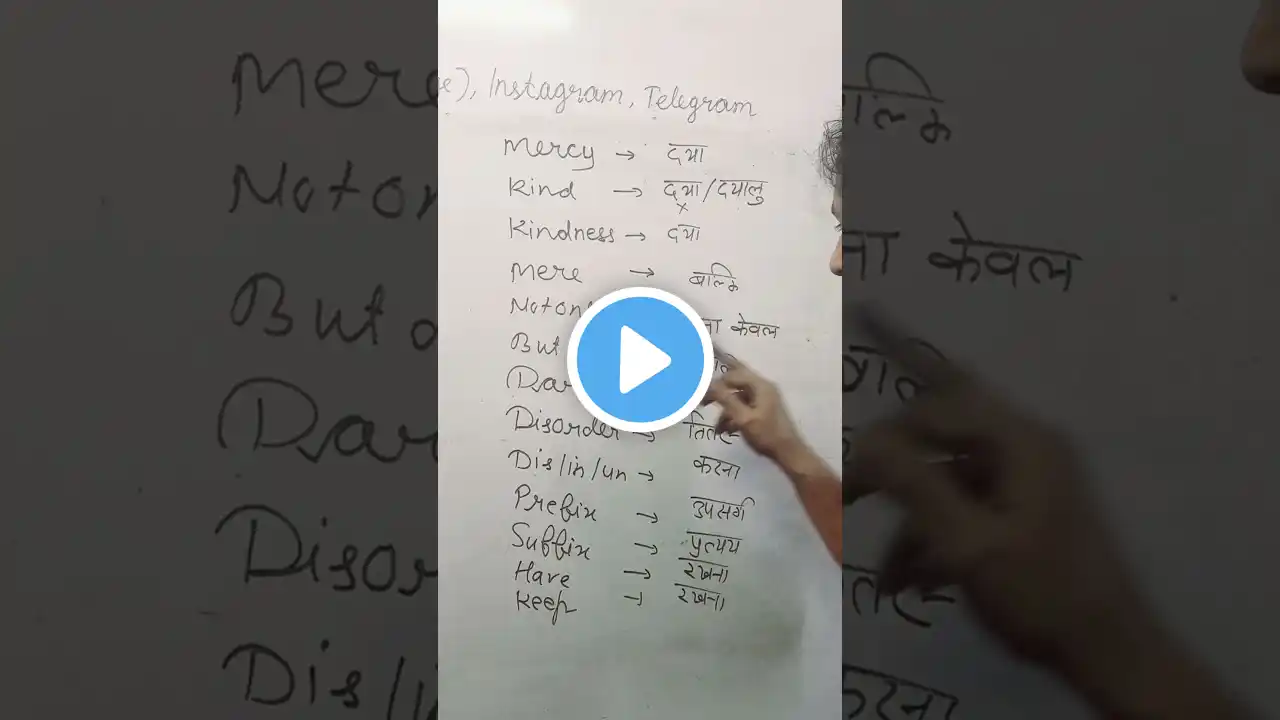 , Instagram, Telegram
Mercy → दया
Kind → दया/दयालु
x
Kindness → दया
Mere → बल्कि
Not on ना केवल
But
Disorder → तितर-
Dis/in/un → करना
Prefix → उपसर्ग
Suffix → प्रत्यय
Have → रखना
Keep → रखना